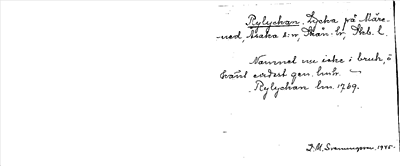 Rylychan. Lycka på Märe-
ned, Asaka s:n, Skån. hr, Skb. l.
Namnet nu icke i bruk, o
känt endast gen. lmhr. —
Rylychan lm. 1769.
D. M. Svenungsson. 1945.